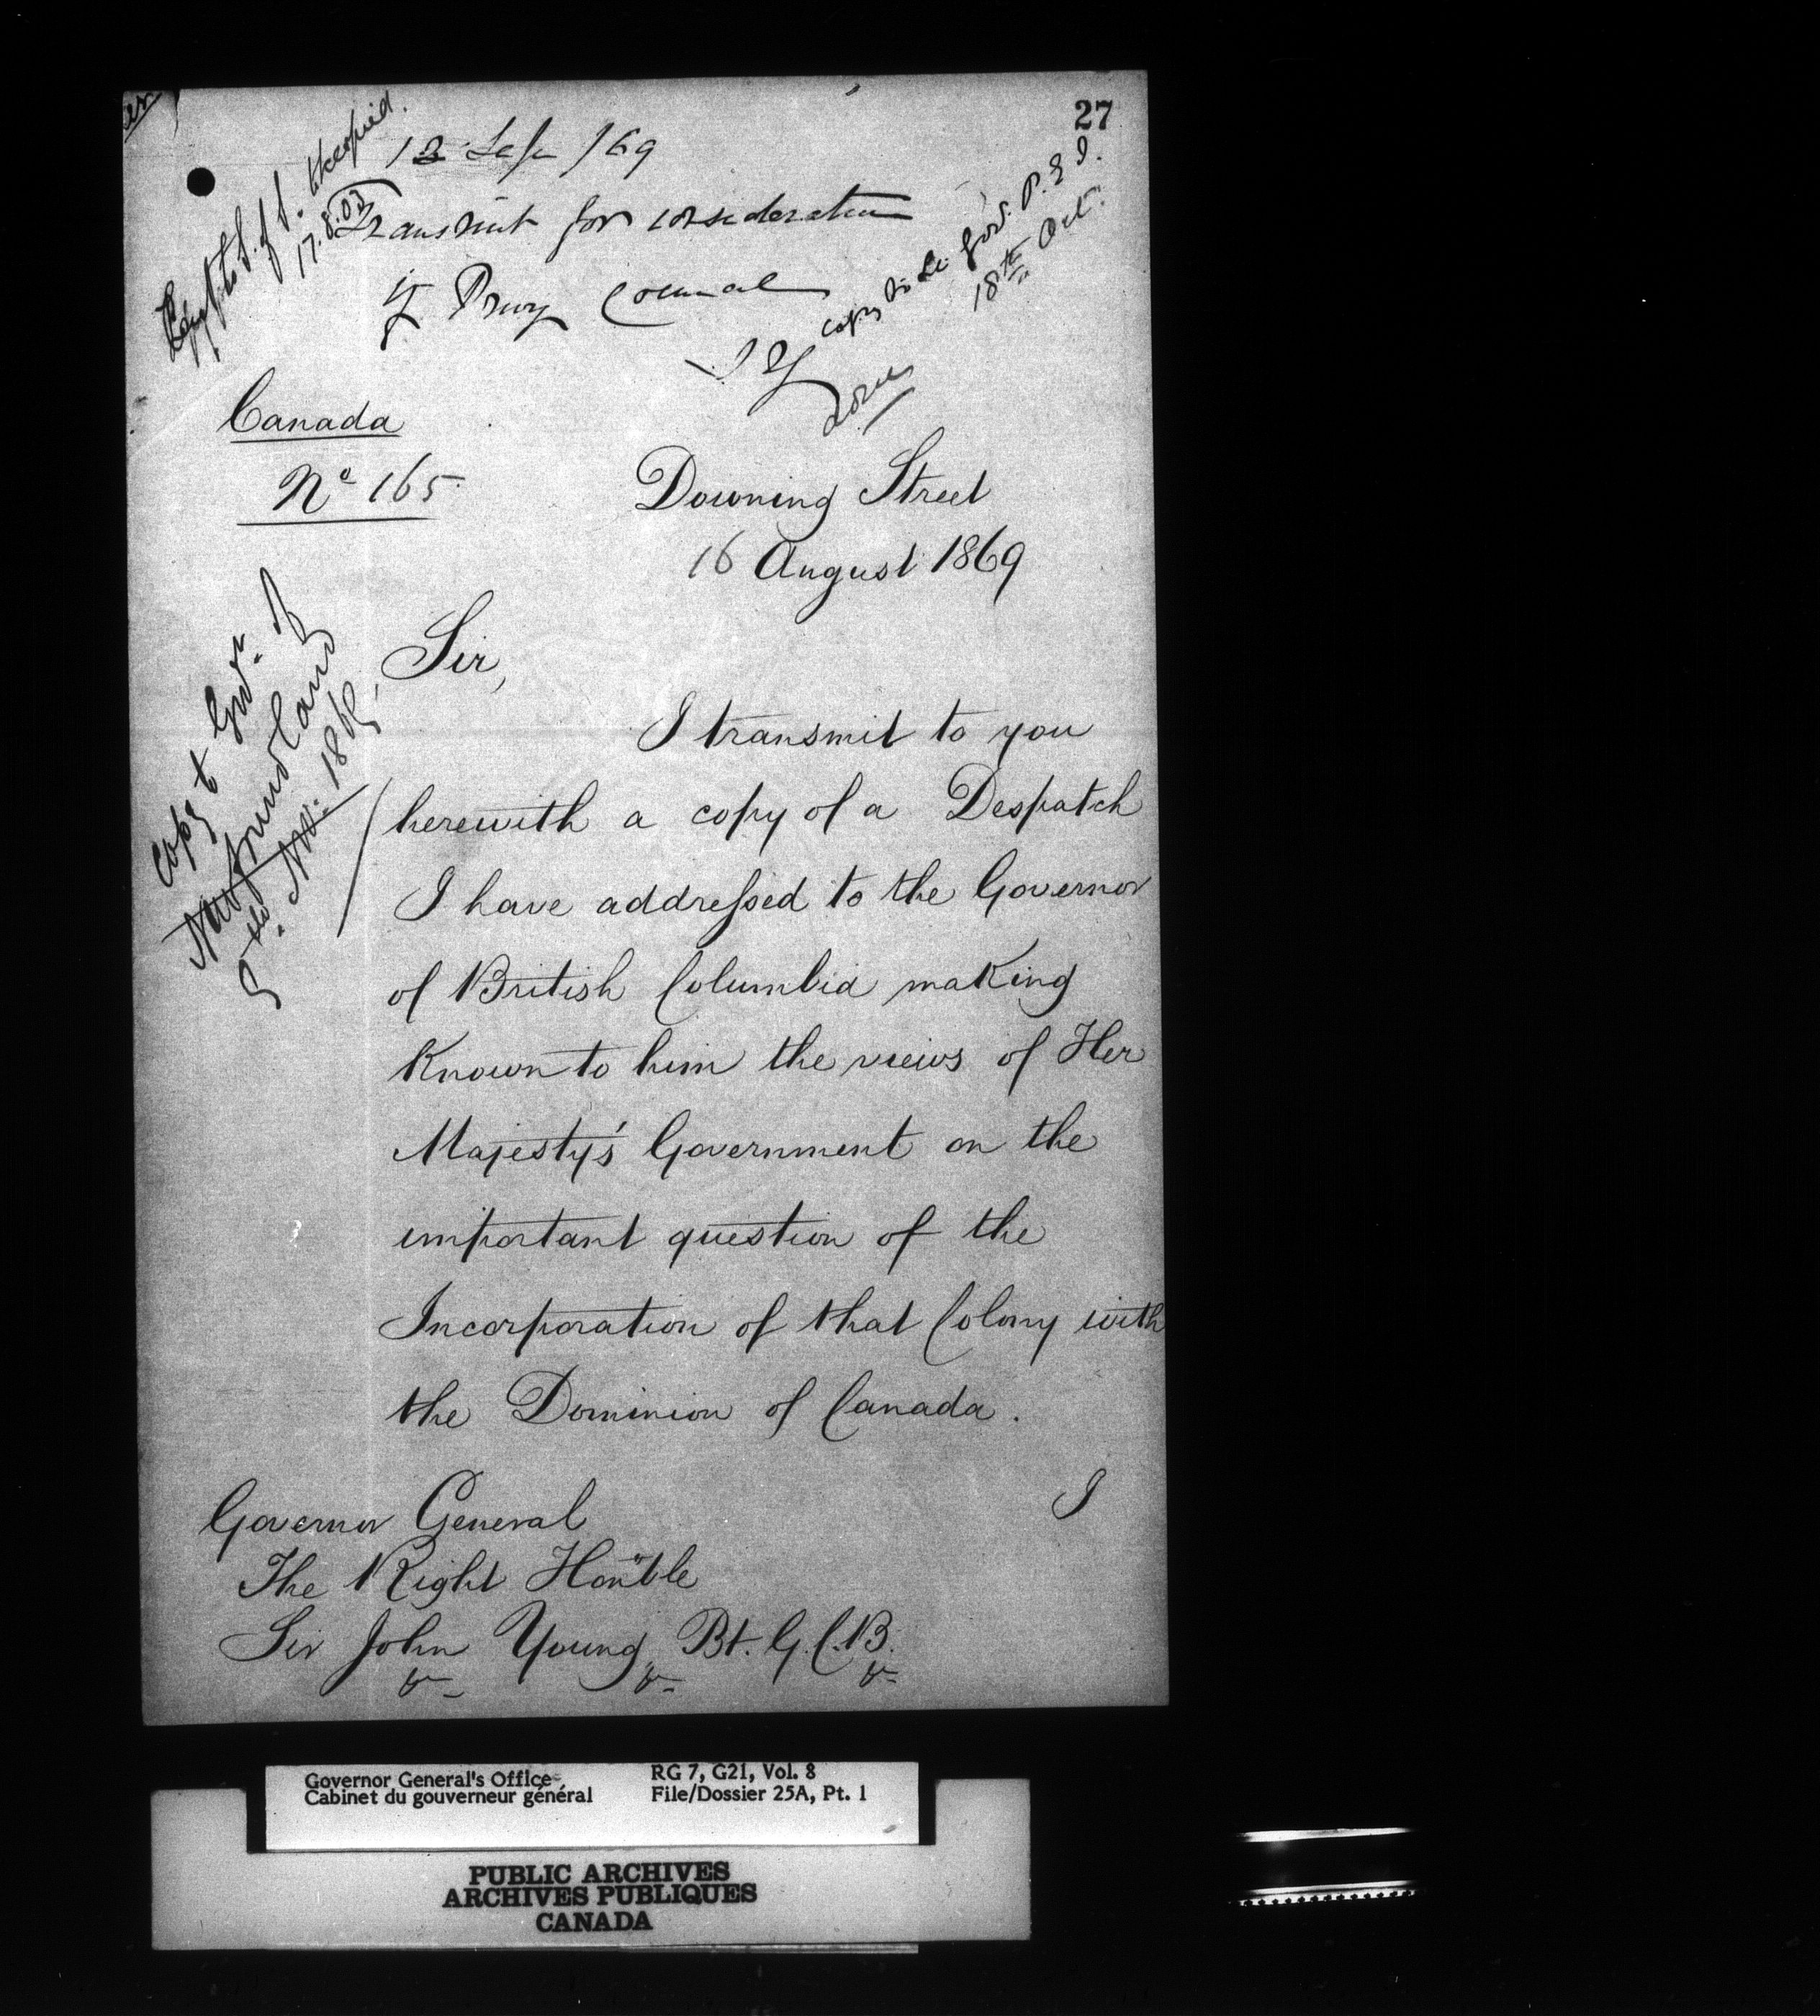 27
13 Sep /69
Transmit for consideration
of Privy Council
J Y
done
Copy to Lt. Gov. P. E. I.
18th Oct.
17.8.03
Canada
No 165
Downing Street
16 August 1869
Copy to Govr. of
Newfoundland
9 Nov. 1869
Sir,
I transmit to you
herewith a copy of a Despatch
I have addressed to the Governor
of British Columbia making
Known to him the views of Her
Majesty's Government on the
important question of the
Incorporation of that Colony with
the Dominion of Canada.
I
Governor General
The Right Honble
Sir John Young, Bt. G.C.B.
&- &- &-
Governor General's Office
Cabinet du gouverneur général
RG 7, G21, Vol. 8
File/Dossier 25A, Pt. 1
PUBLIC ARCHIVES
ARCHIVES PUBLIQUES
CANADA